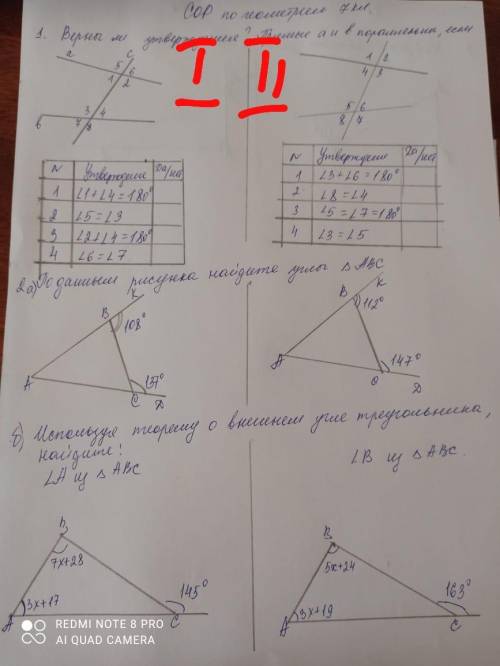 СОР по геометрии 7 кл.
1. Верны ли утверждения? Прямые а и в параллельны, если
I II
a c
5 6
1 2
3 4
в 7 8
1 2
4 3
5 6
8 7
N Утверждение Да/нет
1 ∠1+∠4=180°
2 ∠5=∠3
3 ∠2+∠4=180°
4 ∠6=∠7
N Утверждение Да/нет
1 ∠3+∠6=180°
2 ∠8=∠4
3 ∠5=∠7=180°
4 ∠3=∠5
2а) По данным рисунка найдите углы △ABC
K
B 108°
A 137°
C D
K
B 112°
A 147°
C D
б) Используя теорему о внешнем угле треугольника,
найдите:
∠A из △ABC
∠B из △ABC.
B
7x+28
145°
3x+17
A C
B
5x+24
163°
3x+19
A C
REDMI NOTE 8 PRO
AI QUAD CAMERA